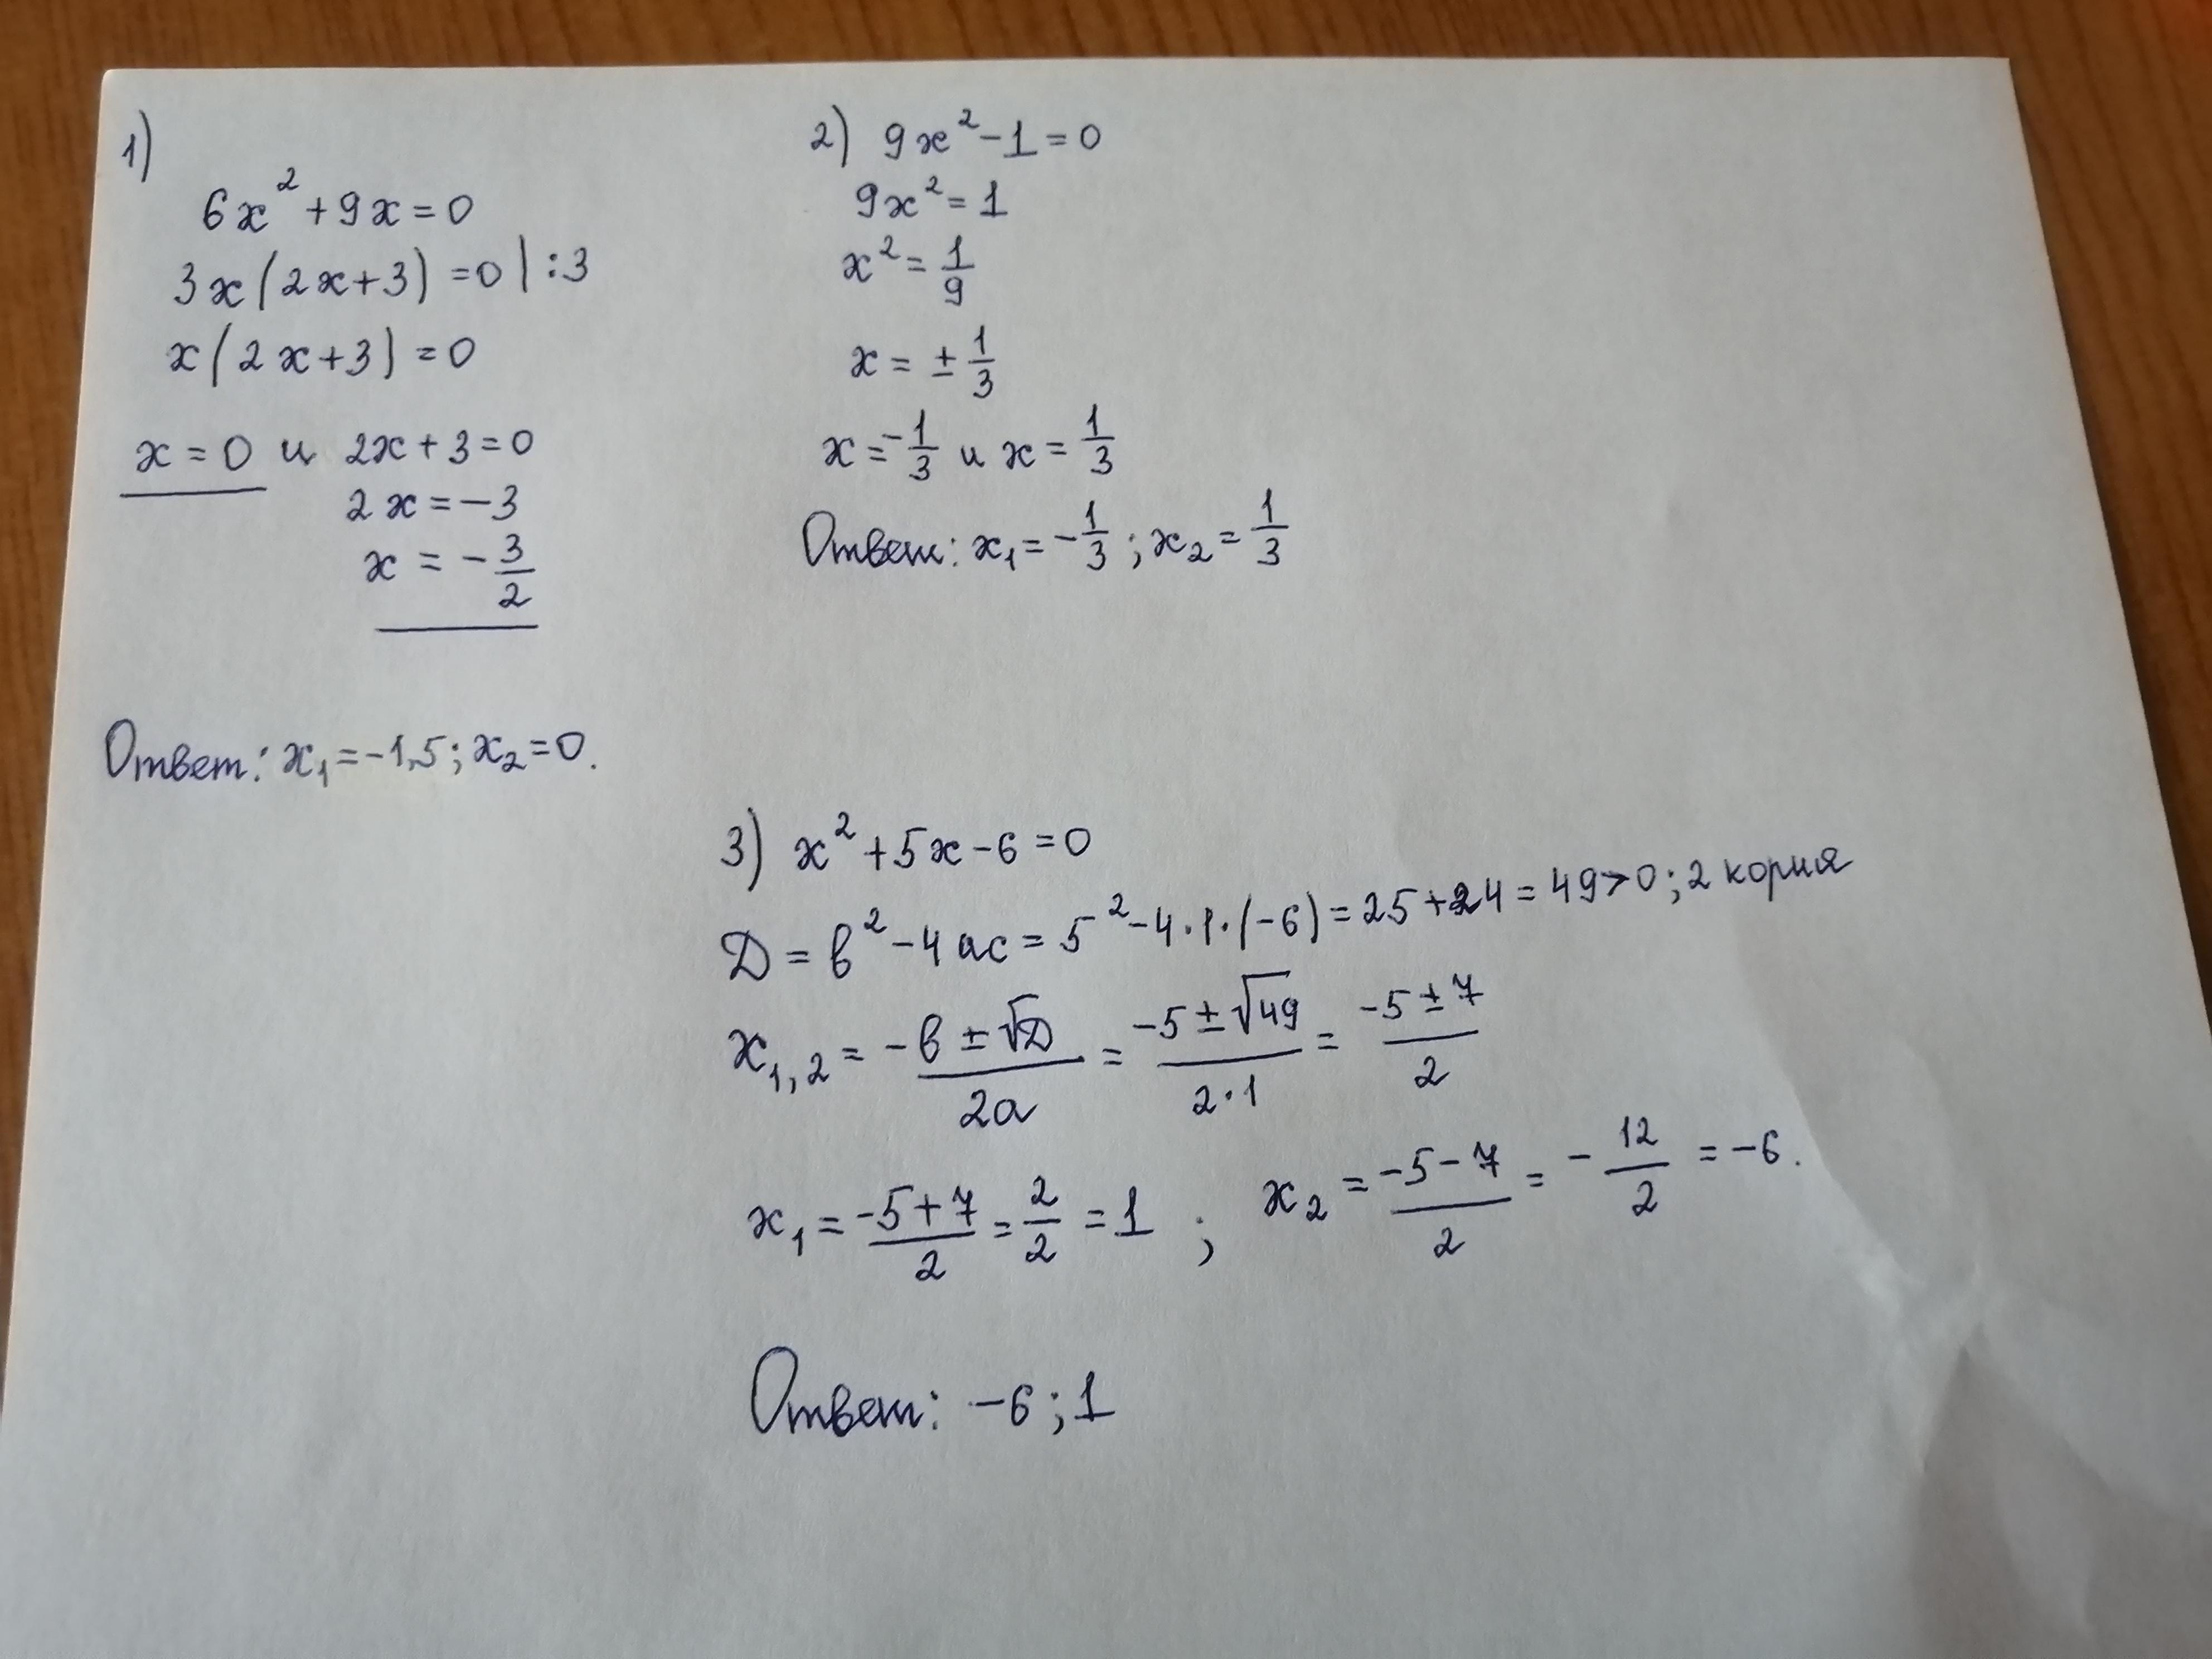 1)
6x² + 9x = 0
3x(2x+3) = 0 | :3
x(2x+3) = 0
x = 0 и 2x + 3 = 0
2x = -3
x = -3/2
Ответ: x₁ = -1,5; x₂ = 0.
2) 9x² - 1 = 0
9x² = 1
x² = 1/9
x = ± 1/3
x = -1/3 и x = 1/3
Ответ: x₁ = -1/3; x₂ = 1/3
3) x² + 5x - 6 = 0
D = b² - 4ac = 5² - 4·1·(-6) = 25 + 24 = 49 > 0; 2 корня
x₁,₂ = (-b ± √D)/(2a) = (-5 ± √49)/(2·1) = (-5 ± 7)/2
x₁ = (-5+7)/2 = 2/2 = 1 ; x₂ = (-5-7)/2 = -12/2 = -6.
Ответ: -6; 1